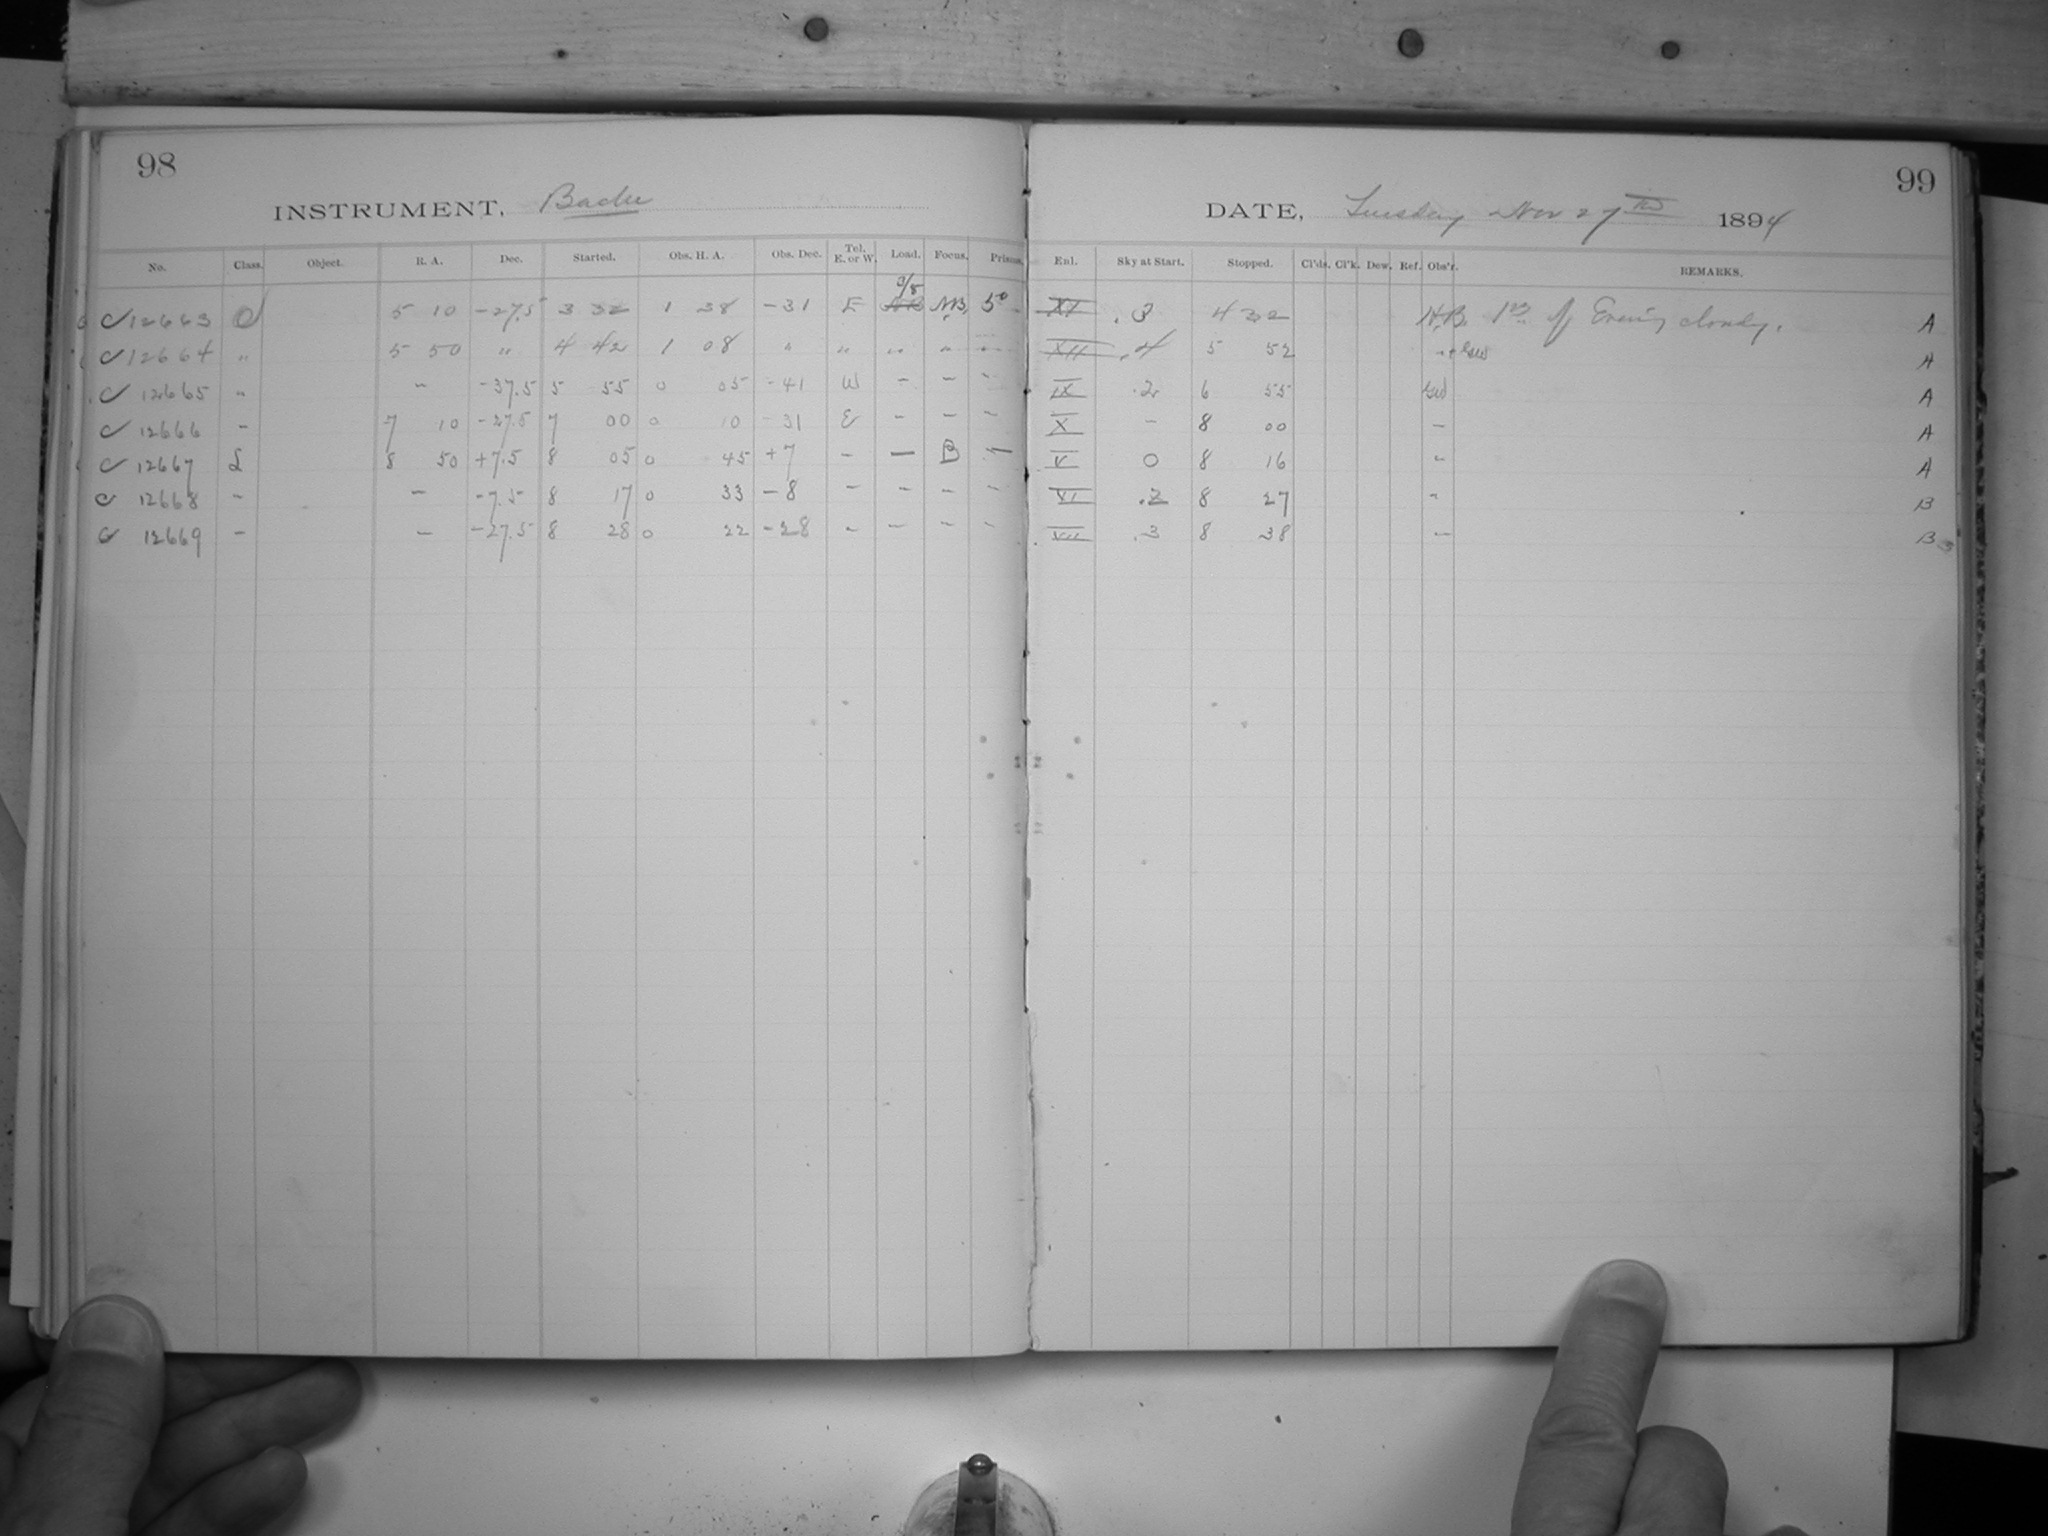 98
INSTRUMENT, Bache
No. Class. Object. R. A. Dec. Started. Obs. H. A. Obs. Dec. Tel. E. or W. Load. Focus. Prisms.
C 12663 O 5 10 -27.5 3 32 1 38 -31 E 9/8 A.B. 5°
C 12664 " 5 50 " 4 42 1 08 " " " " "
C 12665 " - -37.5 5 55 0 05 -41 W - - -
C 12666 - 7 10 -27.5 7 00 0 10 -31 E - - -
C 12667 L 8 50 +7.5 8 05 0 45 +7 - - B -
C 12668 - - -7.5 8 17 0 33 -8 - - - -
C 12669 - - -27.5 8 28 0 22 -28 - - - -
99
DATE, Tuesday Nov 27th 1894
Enl. Sky at Start. Stopped. Cl'ds. Cl'k. Dew. Ref. Obs'r. REMARKS.
XI .3 4 32 H.B. 1st of Evening cloudy. A
XII .4 5 52 A
IX .2 6 55 A
X - 8 00 - A
V 0 8 16 " A
VI .2 8 27 " B
VII .3 8 38 - B